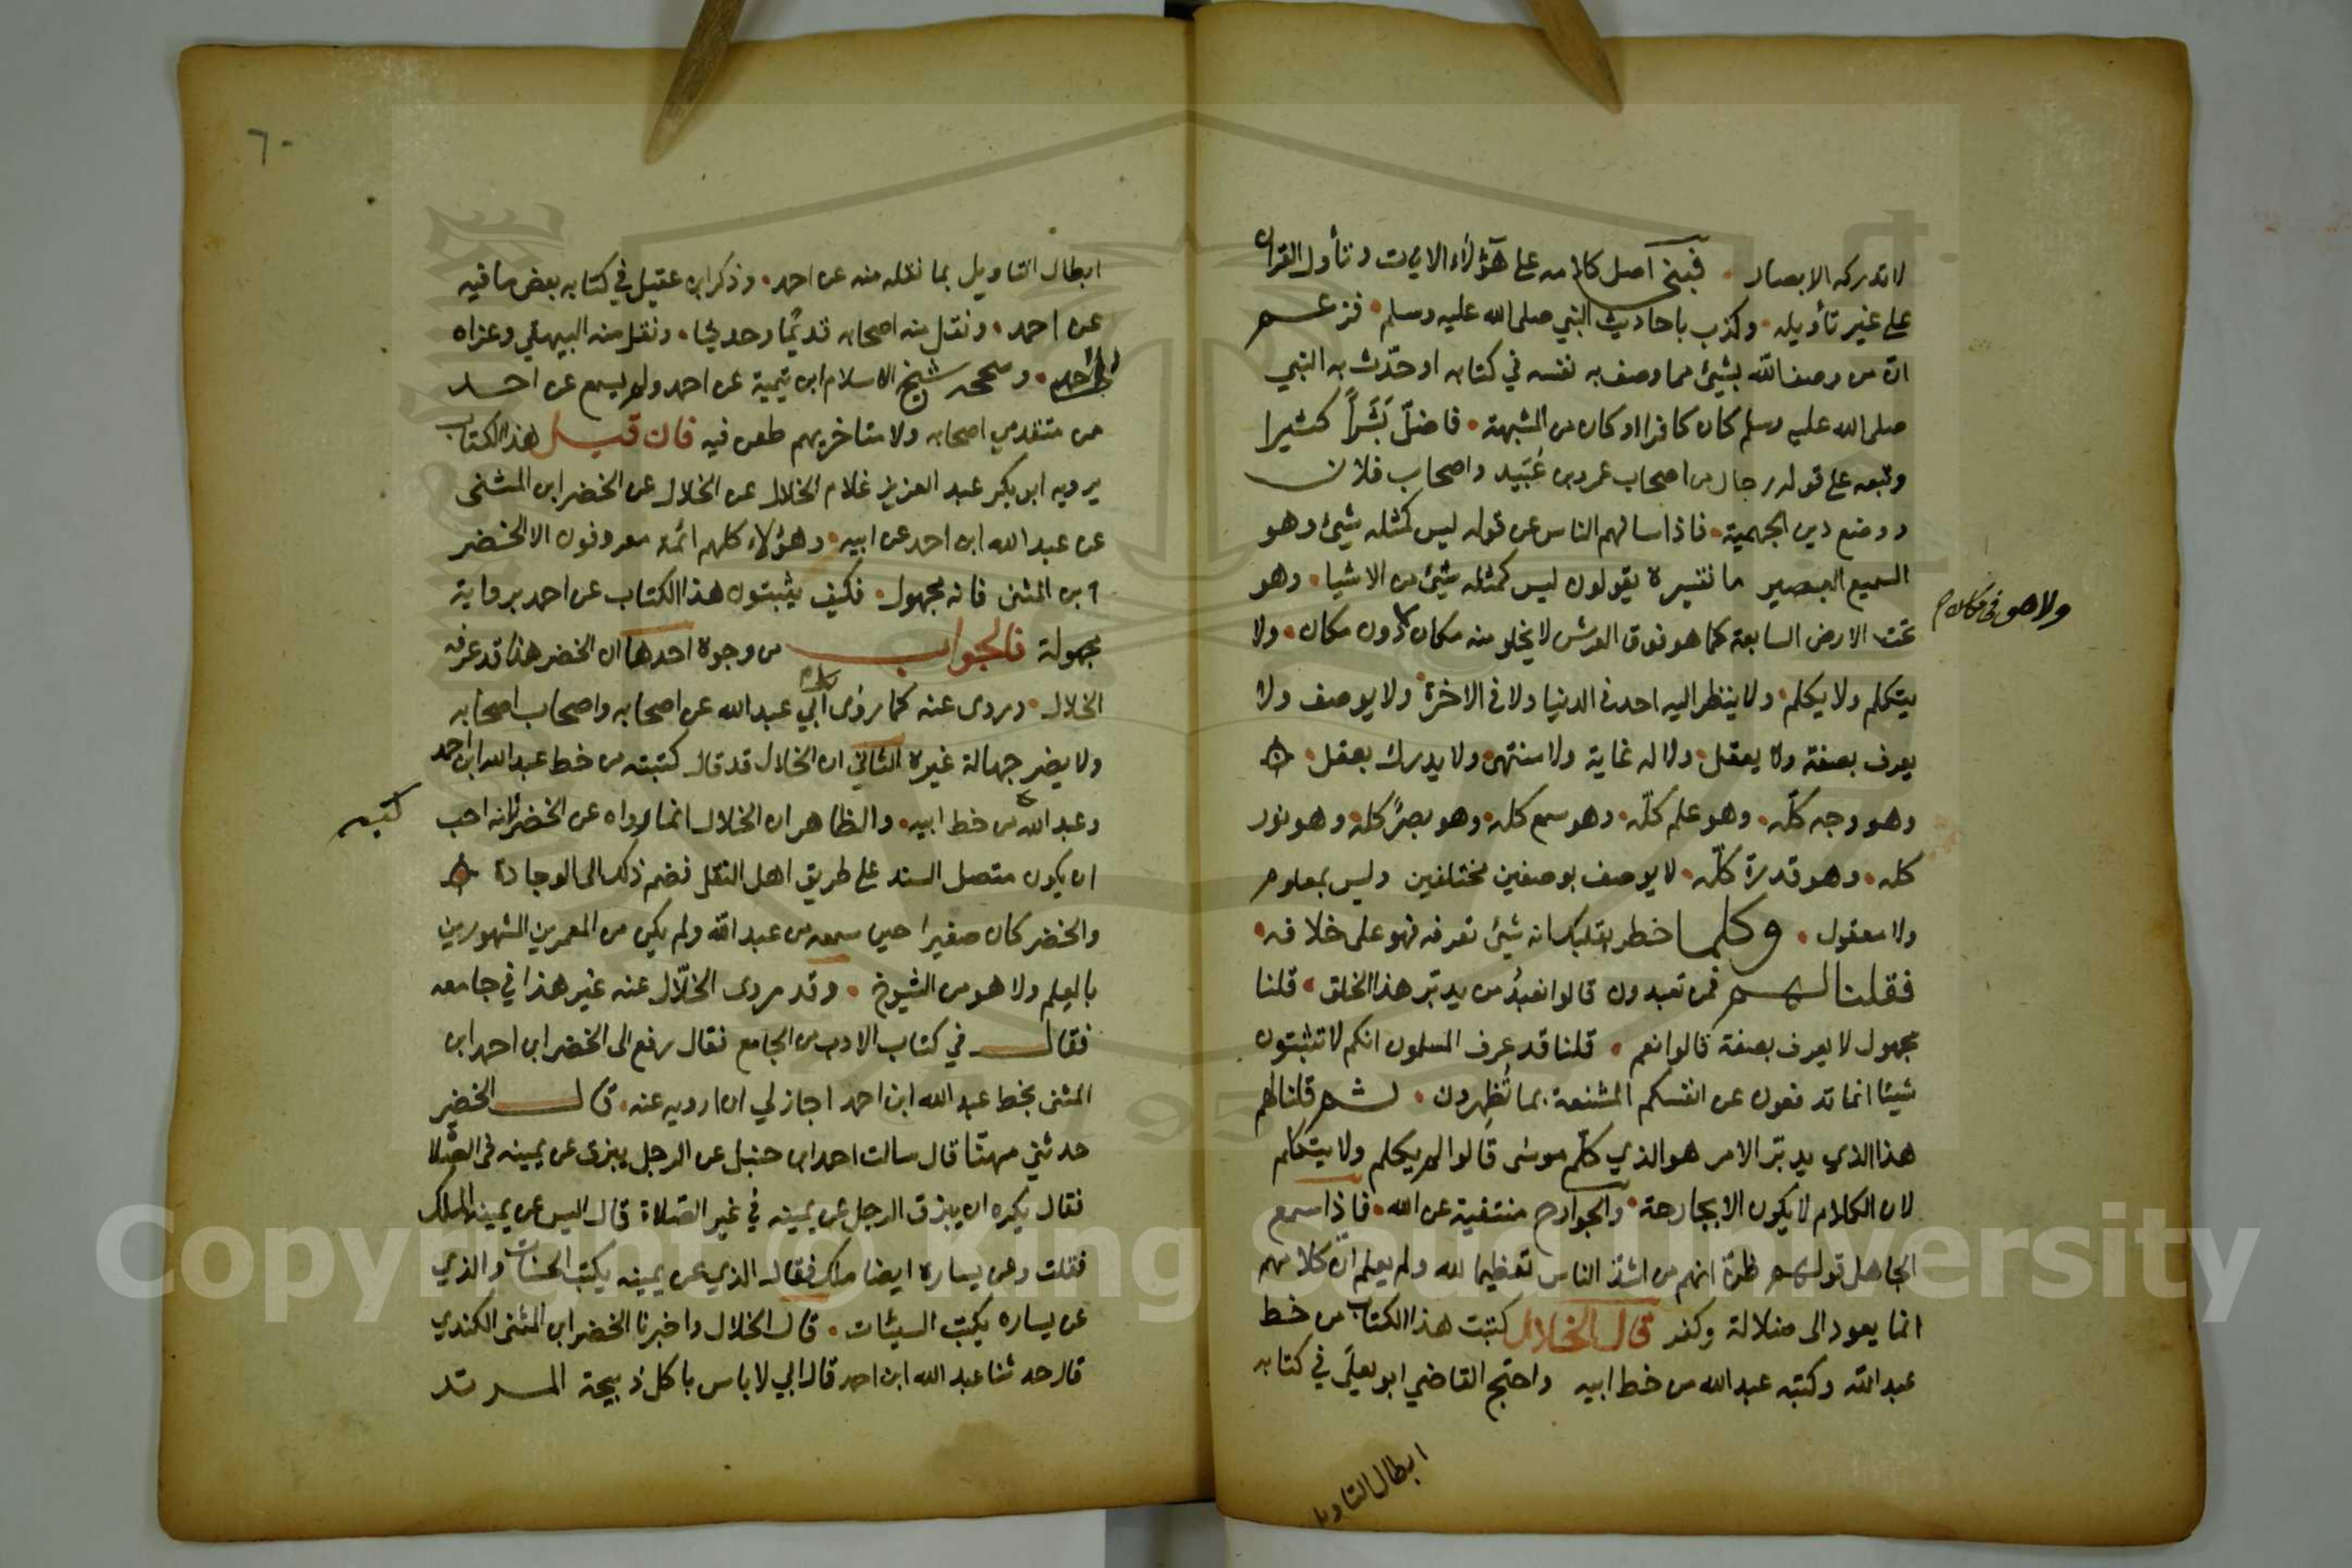 لا تدركه الابصار • فبنى اصل كلامه على هؤلاء الايات وتأول القران
على غير تأويله • وكذب باحاديث النبي صلى الله عليه وسلم • فزعم
ان من وصف الله بشيئ مما وصف به نفسه في كتابه او حدّث به النبي
صلى الله عليه وسلم كان كافرا او كان من المشبهة • فاضلّ بَشَراً كثيرا
وتبعه على قوله رجال من اصحاب عمرو بن عُبَيد واصحاب فلان
ووضع دين الجهمية • فاذا سالهم الناس عن قوله ليس كمثله شيئ وهو
السميع البصير ما تفسيره يقولون ليس كمثله شيئ من الاشيا • وهو
تحت الارض السابعة كما هو فوق العرش لا يخلو منه مكان دون مكان • ولا
ولا هو في مكان
يتكلم ولا يكلم • ولا ينظر اليه احد في الدنيا ولا في الاخرة • ولا يوصف ولا
يعرف بصفة ولا يعقل • ولا له غاية ولا منتهى • ولا يدرك بعقل •
وهو وجه كلّه • وهو علم كلّه • وهو سمع كله • وهو بصرٌ كله • وهو نور
كله • وهو قدرة كلّه • لا يوصف بوصفين مختلفين وليس بمعلوم
ولا معقول • وكلما خطر بقلبك انه شيئ تعرفه فهو على خلافه •
فقلنا لهم فمن تعبدون قالوا نعبُدُ من يدبّر هذا الخلق • قلنا
مجهول لا يعرف بصفة قالوا نعم • قلنا قد عرف المسلمون انكم لا تثبتون
شيئا انما تدفعون عن انفسكم الشنعة بما تُظهِرون • ثم قلنا لهم
هذا الذي يدبّر الامر هو الذي كلّم موسى قالوا لم يكلم ولا يتكلم
لان الكلام لا يكون الا بجارحة • والجوارح منتفية عن الله • فاذا سمع
الجاهل قولهم ظنّ انهم من اشدّ الناس تعظيما لله ولم يعلم انّ كلامهم
انما يعود الى ضلالة وكفر قال الخلال كتبت هذا الكتاب من خط
عبد الله وكتبه عبد الله من خط ابيه واحتج القاضي ابو يعلَى في كتابه
ابطال التاويل
٦٠
ابطال التاويل بما نقله منه عن احمد • وذكر ابن عقيل في كتابه بعض ما فيه
عن احمد • ونقل منه اصحابه قديمًا وحديثا • ونقل منه البيهقي وعزاه
الى احمد • وصححه شيخ الاسلام ابن تيمية عن احمد ولم يسمع عن احد
من متقدمي اصحابه ولا متاخريهم طعن فيه فان قيل هذا الكتاب
يرويه ابو بكر عبد العزيز غلام الخلال عن الخلال عن الخضر ابن المثنى
عن عبد الله ابن احمد عن ابيه • وهؤلاء كلهم ائمة معروفون الا الخضر
ابن المثنى فانه مجهول • فكيف يثبتون هذا الكتاب عن احمد برواية
مجهولة فالجواب من وجوه احدها ان الخضر هذا قد عرفه
الخلال • وروى عنه كما روى ابي عبد الله عن اصحابه واصحاب اصحابه
ولا يضر جهالة غيره الثاني ان الخلال قد قال كتبته من خط عبد الله ابن احمد
كتبه
وعبد الله من خط ابيه • والظاهر ان الخلال انما رواه عن الخضر لانه احب
ان يكون متصل السند على طريق اهل النقل فضم ذلك الى الوجادة
والخضر كان صغيرا حين سمعه من عبد الله ولم يكن من المعمرين المشهورين
بالعلم ولا هو من الشيوخ • وقد روى الخلّال عنه غير هذا في جامعه
فقال في كتاب الادب من الجامع فقال رفع الى الخضر ابن احمد ابن
المثنى بخط عبد الله ابن احمد اجاز لي ان ارويه عنه • قال الخضر
حدثني مهنّا قال سالت احمد ابن حنبل عن الرجل يبزق عن يمينه في الصلا
فقال يكره ان يبزق الرجل عن يمينه في غير الصلاة قال اليس عن يمينه الملك
فقلت وعن يساره ايضا ملك فقال الذي عن يمينه يكتب الحسنات والذي
عن يساره يكتب السيئات • قال الخلال واخبرنا الخضر ابن المثنى الكندي
قال حدثنا عبد الله ابن احمد قال ابي لا باس باكل ذبيحة المرتد
Copyright © King Saud University